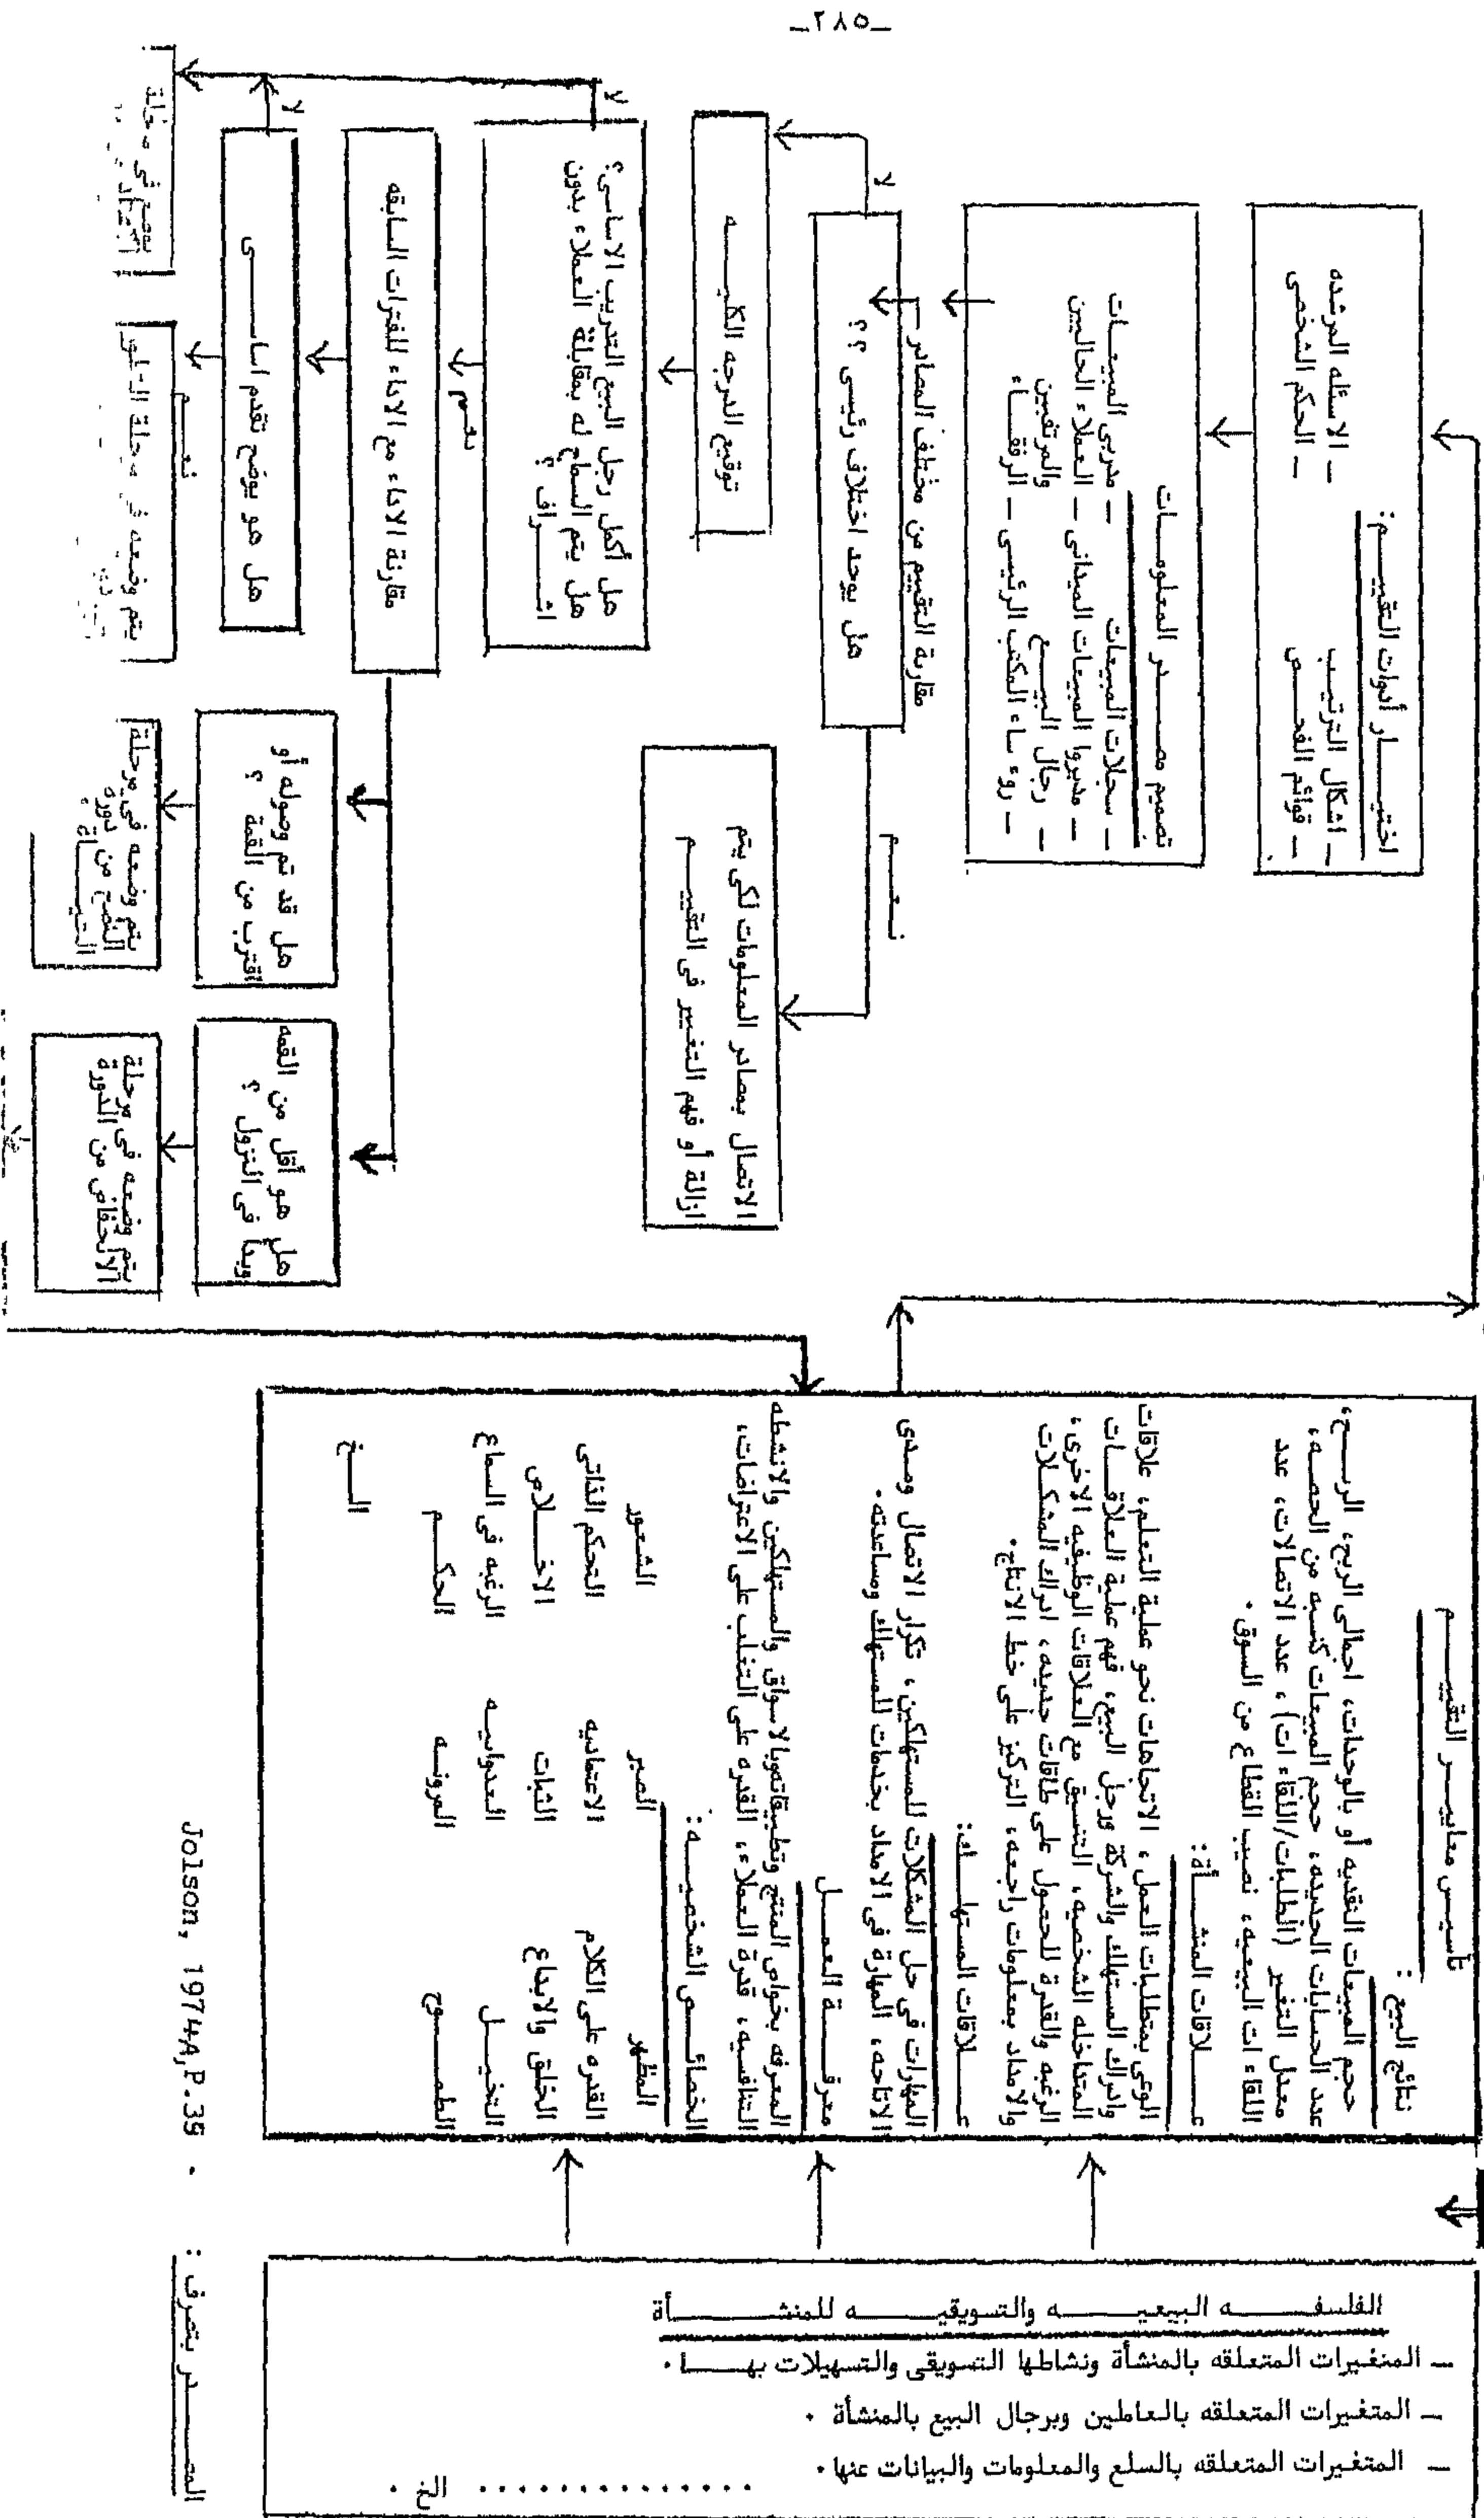 _٢٨٥_
الفلسفـــه البيعيـــه والتسويقيـــه للمنشـــأة
ـ المتغيرات المتعلقه بالمنشأة ونشاطها التسويقى والتسهيلات بهـــا ٠
ـ المتغيرات المتعلقه بالعاملين وبرجال البيع بالمنشأة ٠
ـ المتغيرات المتعلقه بالسلع والمعلومات والبيانات عنها ٠
٠٠٠٠٠٠٠٠٠٠٠٠٠٠ الخ ٠
تأسيس معاييـــر التقييـــم
نتائج البيع :
حجم المبيعات النقديه أو بالوحدات، اجمالى الربح، الربـــح،
عدد الحسابات الجديده، حجم المبيعات كنسبه من الحصه،
معدل التغير (الطلبات/اللقاء ات) ، عدد الاتصالات، عدد
اللقاء ات البيعيه، نصيب القطاع من السوق ٠
عـــلاقات المنشـــأة:
الوعى بمتطلبات العمل ، الاتجاهات نحو عملية التعلم، علاقات
وادراك المستهلك والشركة ورجل البيع، فهم عملية العلاقـــات
المتداخله الشخصيه، التنسيق مع العلاقات الوظيفيه الاخرى،
الرغبه والقدرة للحصول على طاقات جديده، ادراك المشكـلات
والامداد بمعلومات راجعه، التركيز على خط الانتاج٠
عـــلاقات المستهلـــك:
المهارات فى حل المشكلات للمستهلكين ، تكرار الاتصال ومـدى
الاتاحه، المهارة فى الامداد بخدمات للمستهلك ومساعدته٠
معرفـــة العمـــل
المعرفه بخواص المنتج وتطبيقاتهوبالاسواق والمستهلكين والانشطه
التنافسيه، قدرة العملاء، القدره على التغلب على الاعتراضات،
الخصائـــص الشخصيـــه:
المظهر الصبر الشعور
القدره على الكلام الاعتماديه التحكم الذاتى
الخلق والابداع الثبات الاخـــلاص
التخيـــل العدوانيـه الرغبه فى السماع
الطمـــوح المرونـــه الحكـــم
الـــخ
المصـــدر بتصرف : Jolson, 1974A,P.35 ٠
اختيـــار أدوات التقييـــم:
ـ اشكال الترتيب ـ الاسئله المرشده
ـ قوائم الفحـــص ـ الحكم الشخصى
تصميم مصـــدر المعلومـــات
ـ سجلات المبيعات ـ مدربى المبيعـــات
ـ مديروا المبيعات الميدانى ـ العملاء الحاليين
ـ رجال البيـــع والمرتقبين
ـ روءساء المكتب الرئيسى ـ الرفقـــاء
مقارنة التقييم من مختلف المصادر
هل يوجد اختلاف رئيسى ؟؟
لا
نـعـــم
توقيع الدرجه الكليـــه
الاتصال بمصادر المعلومات لكى يتم
ازالة أو فهم التغيير فى التقييـــم
هل أكمل رجل البيع التدريب الاساسى؟
هل يتم السماح له بمقابلة العملاء بدون
اشـــراف ؟
لا
نعـم
مقارنة الاداء مع الاداء للفترات السابقه
هل هو يوضح تقدم اساســـى
لا
نعـــم
هل قد تم وصوله أو
اقترب من القمة ؟
هل هو أقل من القمه
ويبدأ فى النزول ؟
يتم وضعه فى مرحلة
يتم وضعه فى مرحلة
النضج من دورة
الحيـــاة
يتم وضعه فى مرحلة
الانخفاض من الدورة